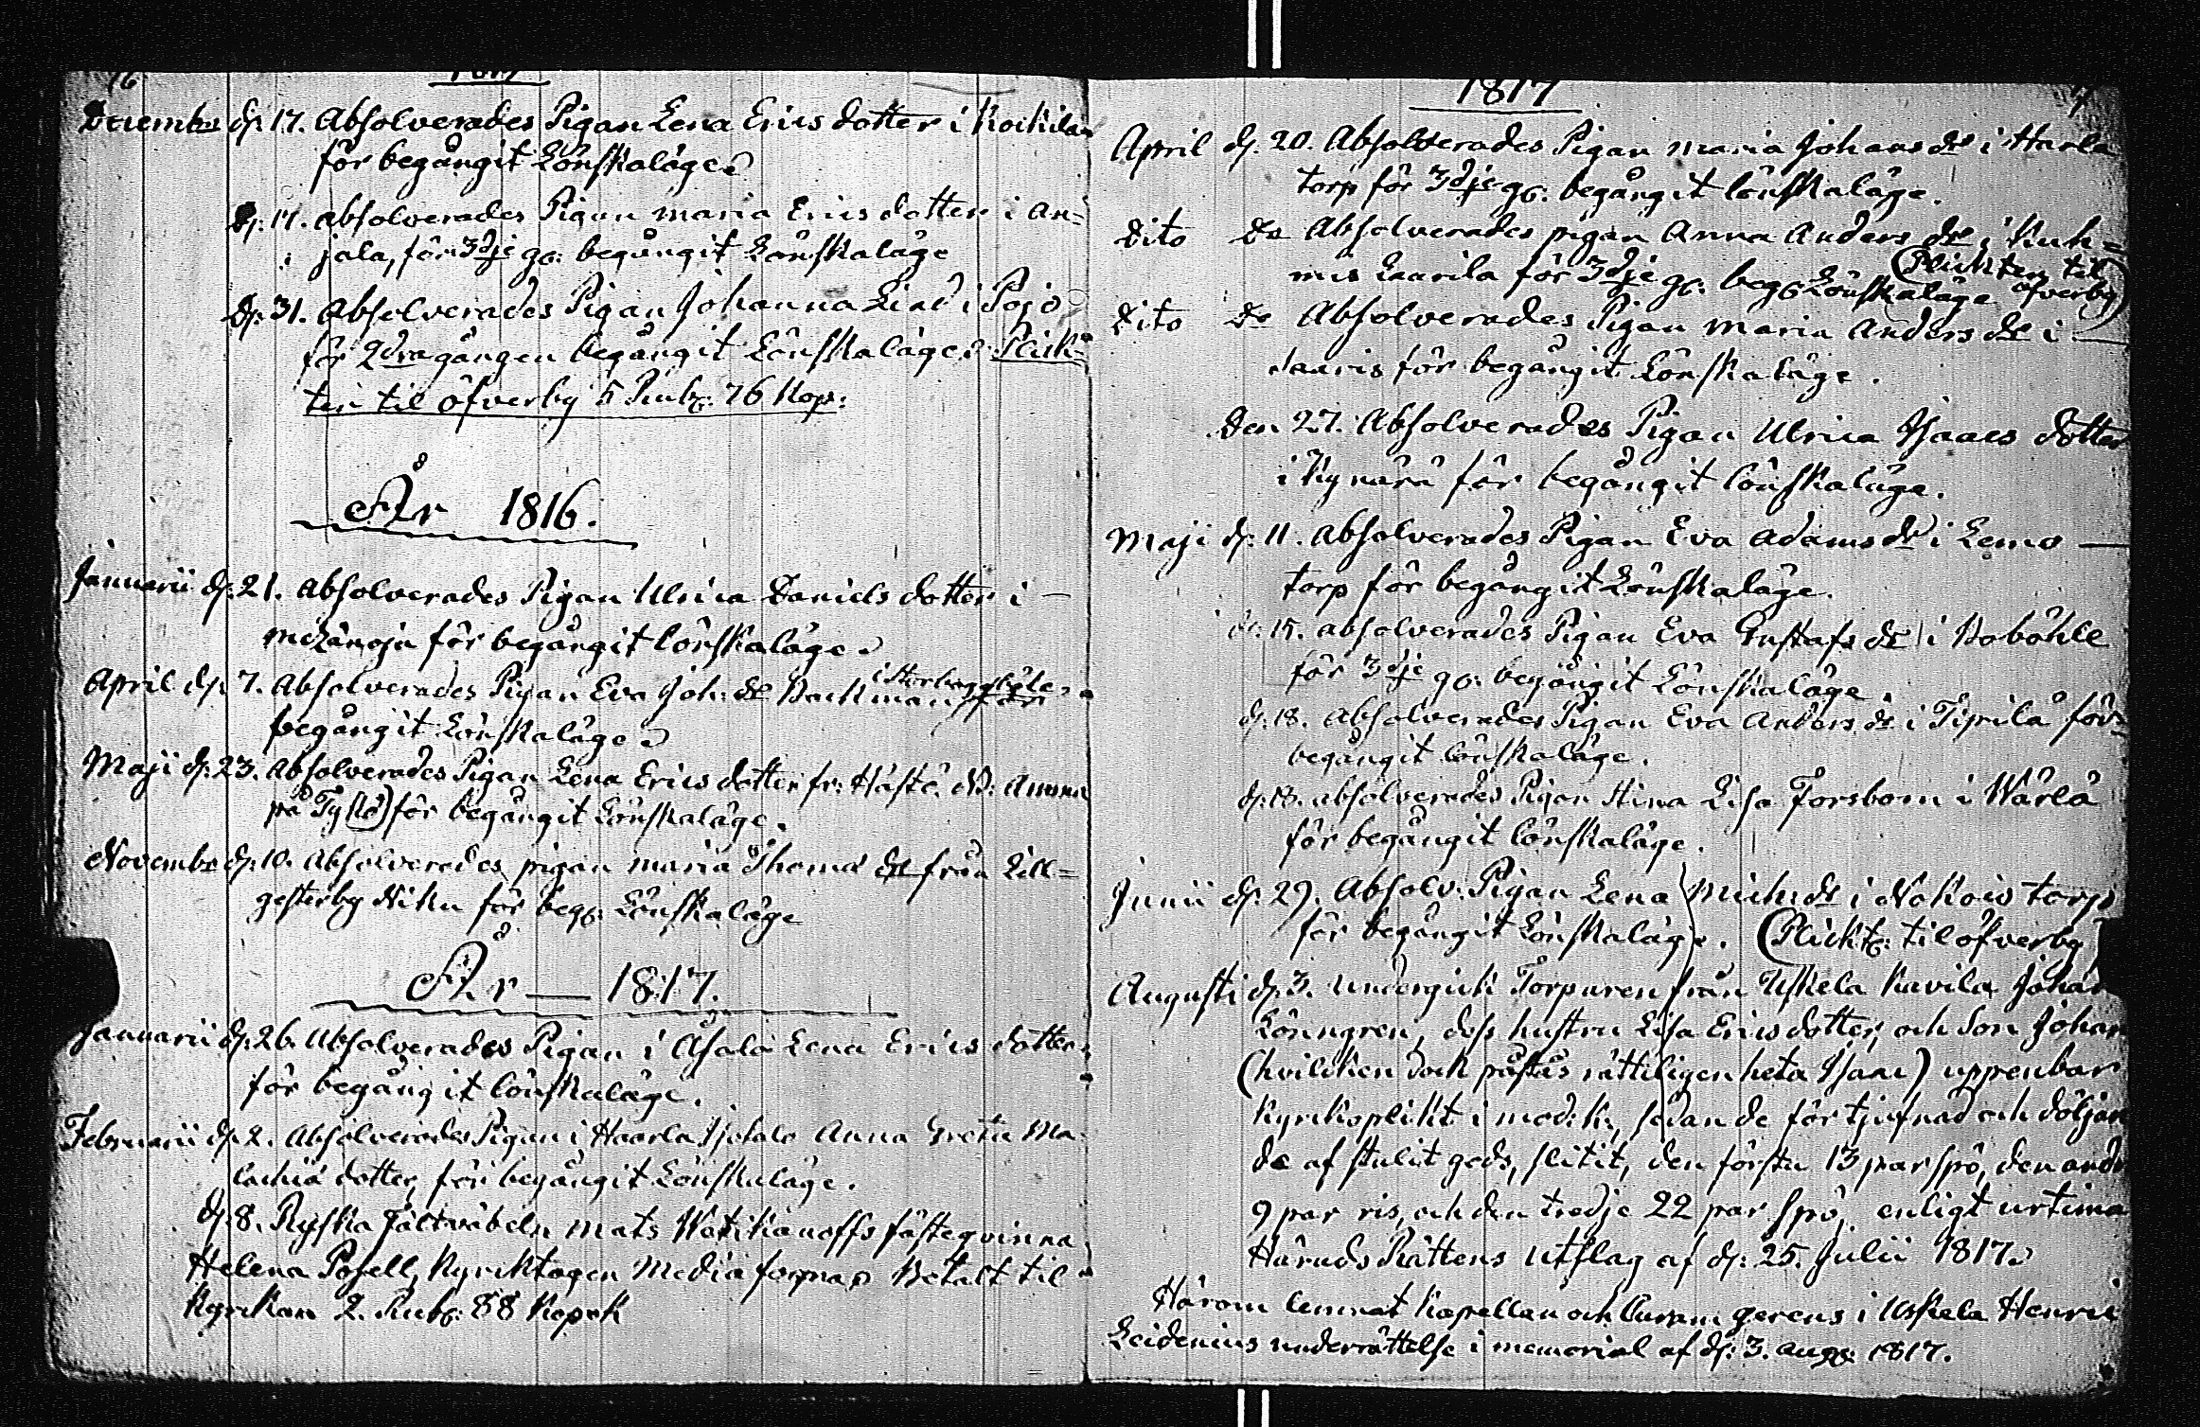 16
Decembr d: 17. Absolverades Pigan Lena Erics dotter i Kockila
för begångit Lönskaläge.
D: 17. absolverades Pigan Maria Erics dotter i An=
jala, för 3dje gg: begångit Lönskaläge
D: 31. Absolverades Pigan Johanna Lind i Pojo
för 2dra gången begångit Lönskaläge. Plick=
ten til öfverby 5 Rub: 76 Kop:
År 1816.
Januarii d: 21. Absolverades Pigan Ulrica Daniels dotter i
för begångit lönskaläge.
April d: 7. Absolverades Pigan Eva Joh: dr Backman för
begångit Lönskaläge.
Maji d: 23. Absolverades Pigan Lena Erics dotter fr: Hästö. NB: Amma
på Tyskö) för begångit Lönskaläge.
Novembr d: 10. Absolverades pigan Maria Thoms dr från Lill=
gesterby Niku för beg: Lönskaläge
År — 1817.
Januarii d: 26. Absolverades Pigan i Åsala Lena Erics dotter
för begångit lönskaläge.
Februarii d: 2. Absolverades Pigan i Haarla Isotalo Anna Greta Ma=
lachiæ dotter, för begångit Lönskaläge.
d: 8. Ryska Fältväbeln Mats fästeqvinna
Helena Posell, Kyrktagen Media forma. Betalt til
Kyrkan 2. Rub: 88 Kopek
1817
17
April d: 20. Absolverades Pigan Maria Johans dr i Harla
torp för 3dje gg: begångit lönskaläge.
Dito Do Absolverades pigan Anna Anders dr i Kuh=
mis Laurila för 3dje gg: begg Lönskaläge (Plickten til öfverby)
Dito Do Absolverades Pigan Maria Anders dr i —
daaris för begångit Lönskaläge.
Den 27. Absolverades Pigan Ulrica Isaacs dotter
i Kynärä för begångit lönskaläge.
Maji d: 11. Absolverades Pigan Eva Adams dr i Lemo —
torp för begångit Lönskaläge.
d: 15. absolverades Pigan Eva Gustafs dr i Koböhle
för 3dje gg: begångit Lönskaläge.
d: 18. Absolverades Pigan Eva Anders dr i Tipilä för
begångit lönskaläge.
d: 18. absolverades Pigan Stina Lisa Forsbom i Wärlä
för begångit lönskaläge.
Junii d: 29. Absolv: Pigan Lena Mich: dr i torp
för begångit Lönskaläge. (Plickt: til öfverby
Augusti d: 3. undergick Torparen från Uskela Kavila Johan
Lönngren, dess hustru Lisa Erics dotter, och Son Johan
(hvilcken dock påstås rätteligen heta Isaac) uppenbar
Kyrkoplikt i mod: K:, sedan de för tjufnad och döljan
de af stulit gods, slitit, den första 13 par spö, den andr
9 par ris, och den tredje 22 par spö, enligt urtima
Härads Rättens utslag af d: 25. Julii 1817.
Härom lemnat Kapellan och Curam gerens i Uskela Henric
Leidenius underrättelse i memorial af d: 3. Aug: 1817.